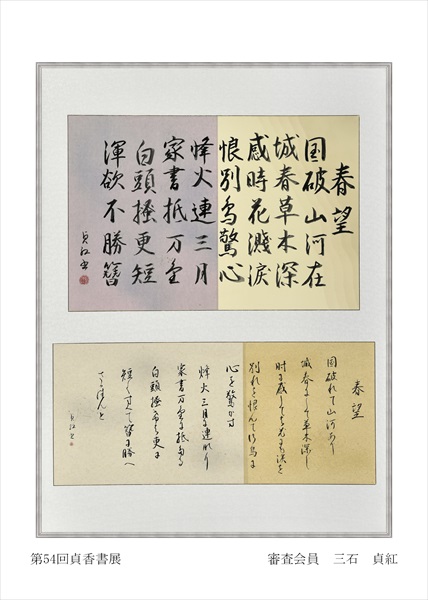 春望
国破山河在
城春草木深
感時花濺涙
恨別鳥驚心
烽火連三月
家書抵万金
白頭搔更短
渾欲不勝簪
貞紅書
春望
国破れて山河あり
城春にして草木深し
時に感しては花にも涙を
別れを恨んては鳥に
心を驚かす
烽火三月に連なり
家書万金に抵る
白頭搔けは更に
短く 簪に勝へ
さらんと
貞紅書
第54回貞香書展
審査会員 三石 貞紅